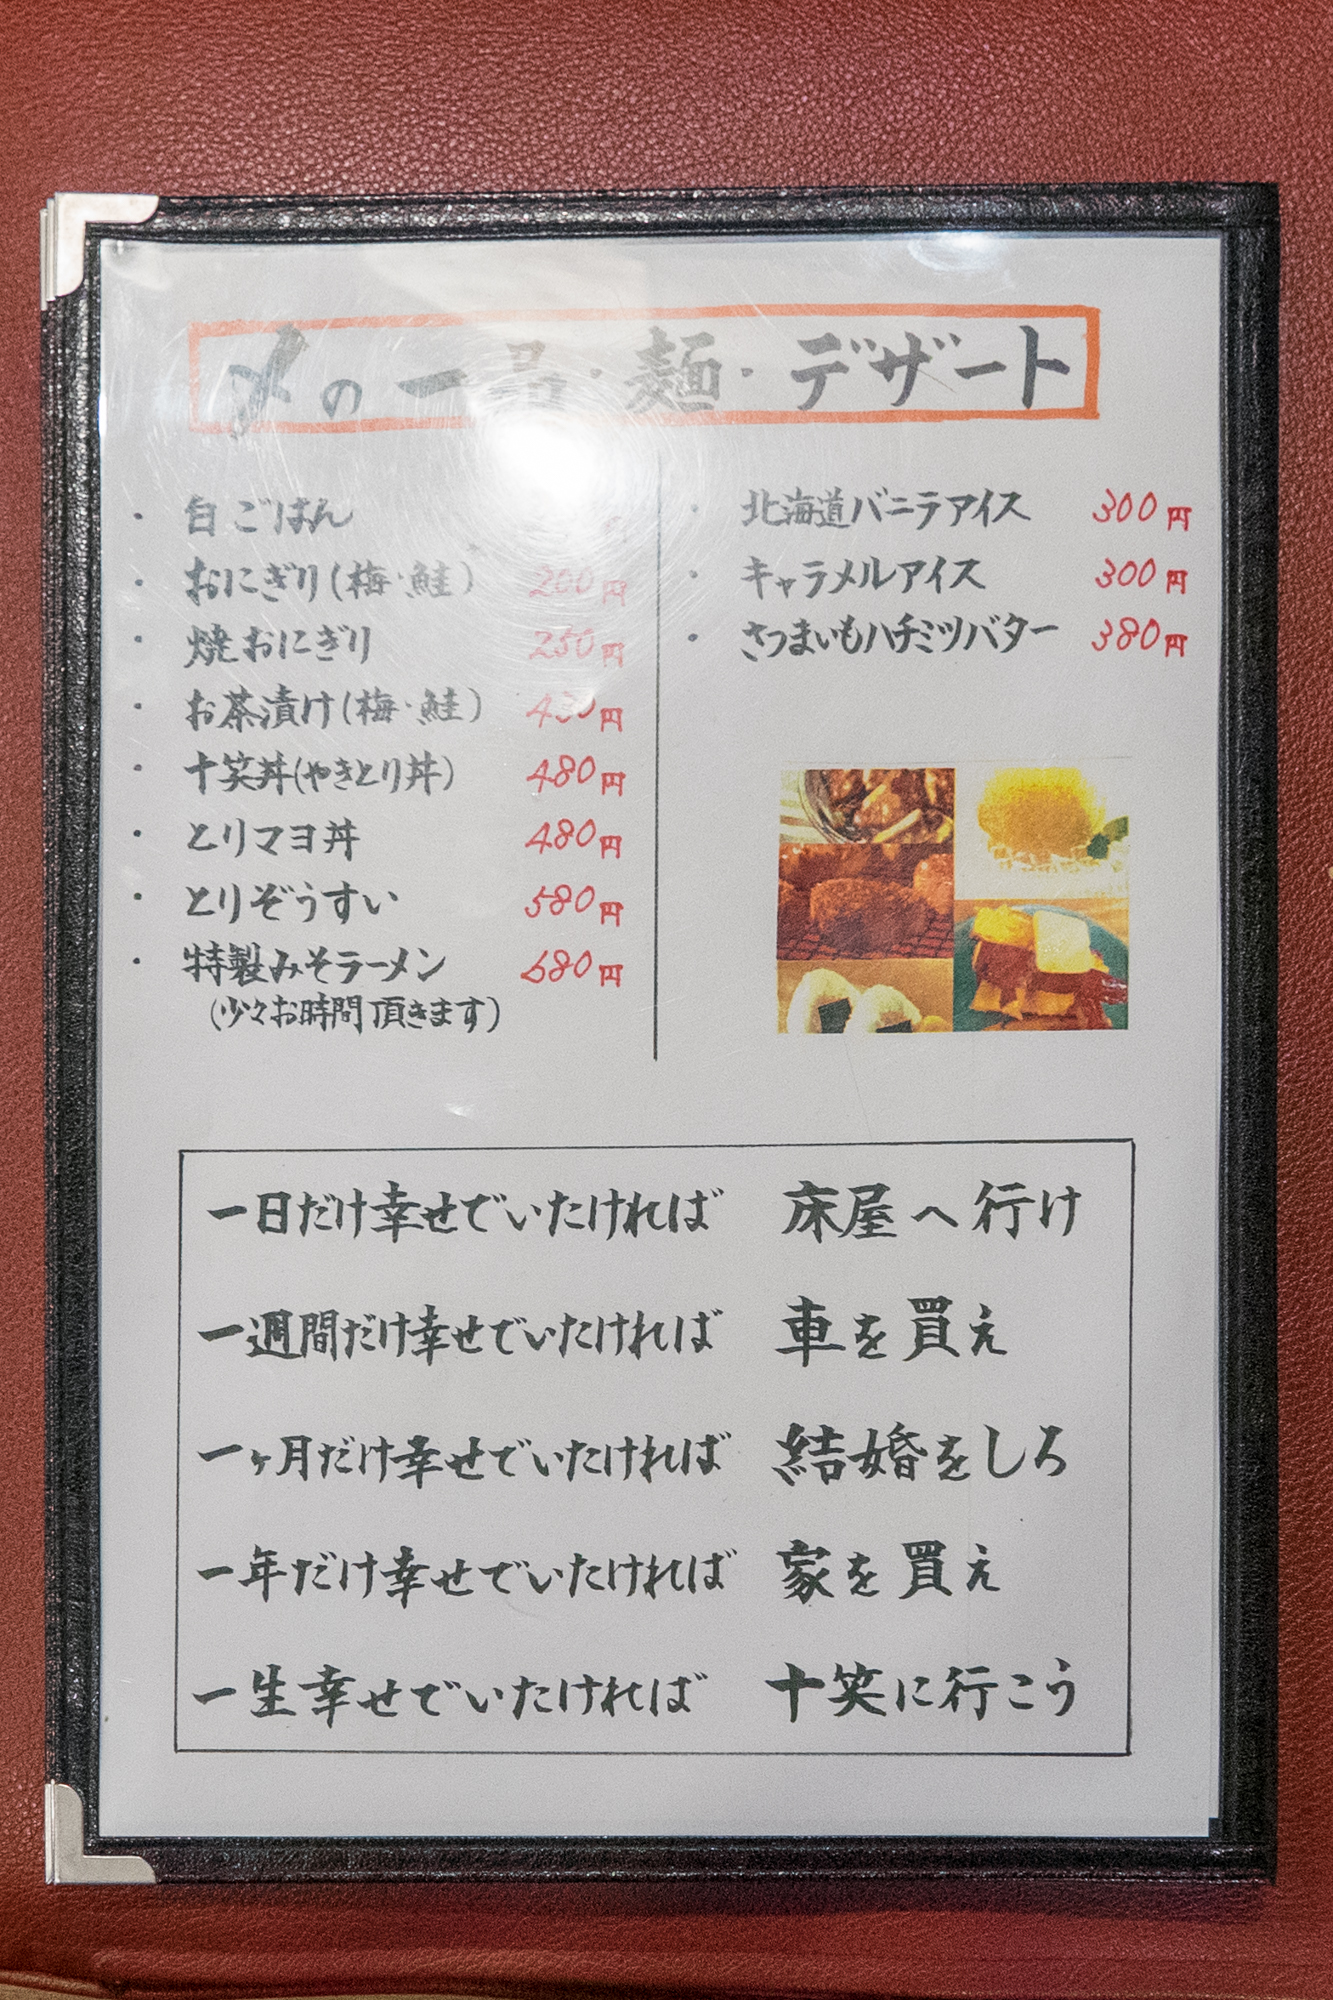 〆の一品・麺・デザート
・白ごはん 円
・おにぎり(梅・鮭) 200円
・焼おにぎり 250円
・お茶漬け(梅・鮭) 430円
・十笑丼(やきとり丼) 480円
・とりマヨ丼 480円
・とりぞうすい 580円
・特製みそラーメン 680円
(少々お時間頂きます)
・北海道バニラアイス 300円
・キャラメルアイス 300円
・さつまいもハチミツバター 380円
一日だけ幸せでいたければ 床屋へ行け
一週間だけ幸せでいたければ 車を買え
一ヶ月だけ幸せでいたければ 結婚をしろ
一年だけ幸せでいたければ 家を買え
一生幸せでいたければ 十笑に行こう